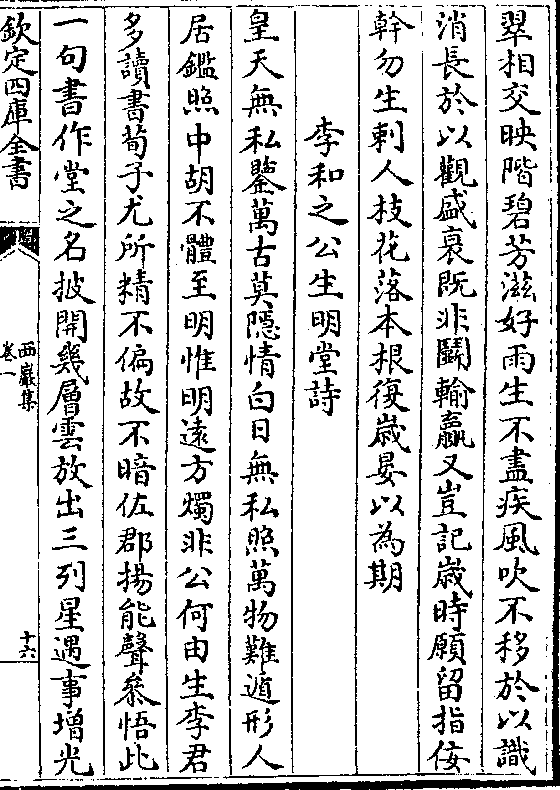 翠相交映階碧芳滋好雨生不盡疾風吹不移於以識
消長於以觀盛衰既非鬭輸贏又豈記歲時願留指佞
幹勿生刺人枝花落本根復歲晏以為期
李和之公生明堂詩
皇天無私鑒萬古莫隱情白日無私照萬物難遁形人
居鑑照中胡不體至明惟明遠方燭非公何由生李君
多讀書荀子尤所精不偏故不暗佐郡揚能聲叅悟此
一句書作堂之名披開幾層雲放出三列星遇事增光
欽定四庫全書
西巖集
卷一
十六